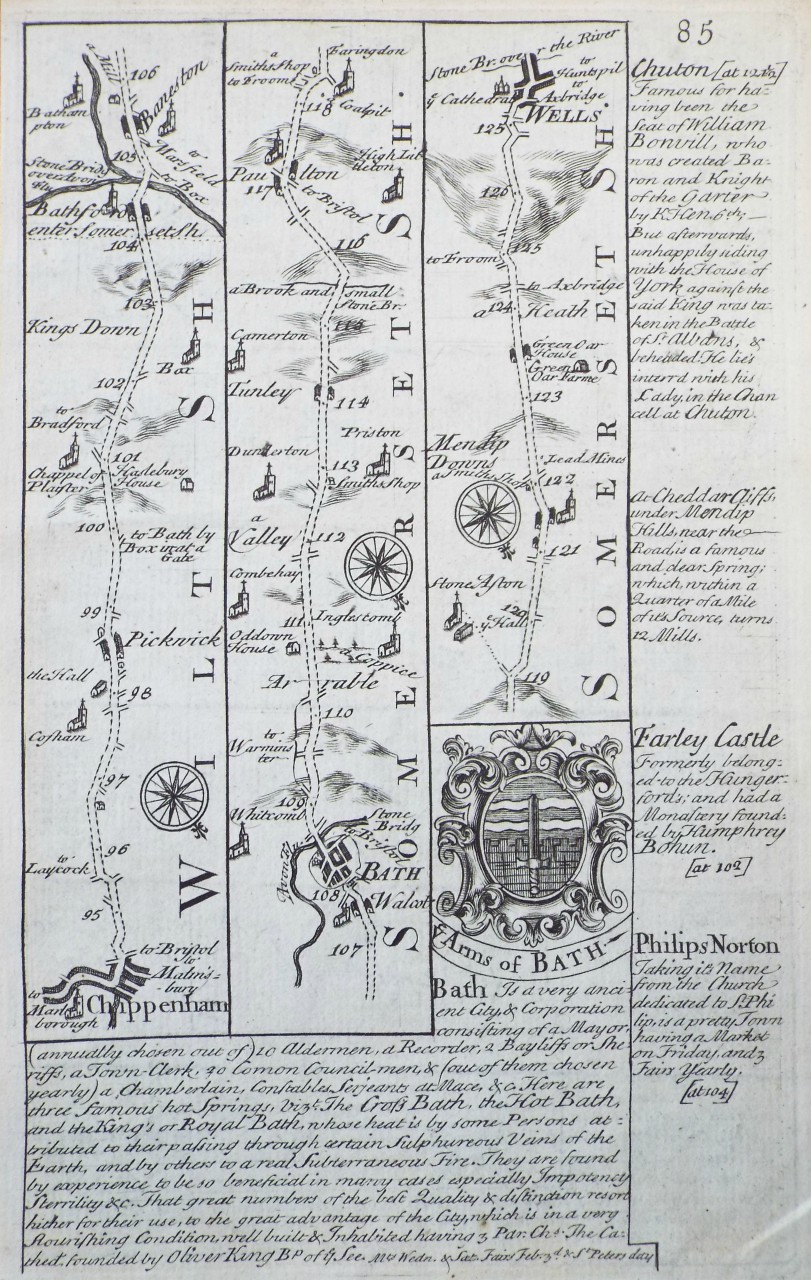 85
a Mill
106
Batham
pton
Baneston
105
to
Marsfield
to Box
Stone Bridg
over Avon
Flu
Bathford
enter Somersetsh
104
103
Kings Down
Box
102
to
Bradford
101
Chappel of
Plaister
Haslebury
House
100
to Bath by
Box in at a
Gate
99
Pickwick
the Hall
98
Cosham
97
96
to
Laycock
95
to Bristol
to
Malms-
bury
to
Marl
borough
Chippenham
WILTSH
a
Smiths Shop
to Froom
Faringdon
118
Coalpit
Paulton
117
High Lit
tleton
to Bristol
116
a Brook and small
Stone Br.
115
Camerton
Tunley
114
Priston
Dunkerton
113
Smiths Shop
a
Valley
112
Combehay
111
Inglescomb
Oddown
House
a Coppice
Arrable
110
to
Warmins
ter
109
Whitcomb
Stone
Bridg
to Bristol
Avon Fl
BATH
108
Walcot
107
SOMERSETSH.
Stone Br. over the River
to
Huntspil
to
Axbridge
ye Cathedral
WELLS.
125
126
125
to Froom
to Axbridge
124
a Heath
Green Oar
House
Green
Oar Farme
123
Mendip
Downs
a Smiths Shop
Lead Mines
122
121
Stone Aston
120
ye Hall
119
SOMERSETSH
Chuton [at 124½]
Famous for ha-
ving been the
Seat of William
Bonvill, who
was created Ba-
ron and Knight
of the Garter
by K. Hen. 6th;
But afterwards,
unhappily siding
with the House of
York against the
said King was ta-
ken in the Battle
of St. Albans, &
beheaded. He lies
interr'd with his
Lady, in the Chan
cell at Chuton.
At Cheddar Cliffs,
under Mendip
Hills, near the
Road, is a famous
and clear Spring;
which within a
Quarter of a Mile
of it's Source, turns
12 Mills.
Farley Castle
Formerly belong-
ed to the Hunger-
fords; and had a
Monastery found-
ed by Humphrey
Bohun.
[at 102]
Philips Norton
Taking it's Name
from the Church
dedicated to St. Phi
lip, is a pretty Town
having a Market
on Friday, and 3
Fairs Yearly.
[at 104]
ye Arms of BATH
Bath Is a very anci-
ent City, & Corporation
consisting of a Mayor,
(annually chosen out of) 10 Aldermen, a Recorder, 2 Bayliffs or She-
riffs, a Town-Clerk, 20 Comon Council-men, & (out of them chosen
yearly) a Chamberlain, Constables, Serjeants at Mace, &c. Here are
three Famous hot Springs, vizt. The Cross Bath, the Hot Bath,
and the King's or Royal Bath, whose heat is by some Persons at-
tributed to their passing through certain Sulphureous Veins of the
Earth, and by others to a real Subterraneous Fire. They are found
by experience to be so beneficial in many cases especially Impotency
Sterrility &c. That great numbers of the best Quality & distinction resort
hither for their use, to the great advantage of the City, which is in a very
flourishing Condition, well built & Inhabited having 3 Par. Chs. The Ca-
thed. founded by Oliver King Bp of ye See. Mts Wedn. & Sat. Fairs Feb. 3d & St Peters day